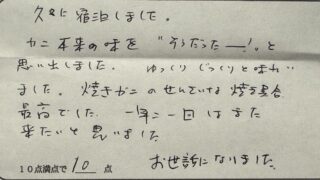 久々に宿泊しました。
カニ本来の味を"そうだったー!"と
思い出しました。ゆっくりじっくりと味わい
ました。焼きガニのせんさいな焼き具合
最高でした。一年に一回はまた
来たいと思いました
10点満点で 10 点 お世話になりました。